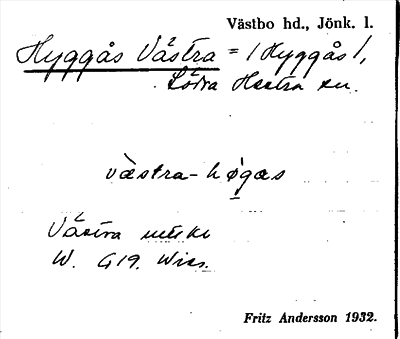 Västbo hd., Jönk. l.
Hyggås Västra = / Hyggås /,
Södra Hestra sn.
västra-høgas
Västra
W. G19. Wiss.
Fritz Andersson 1932.